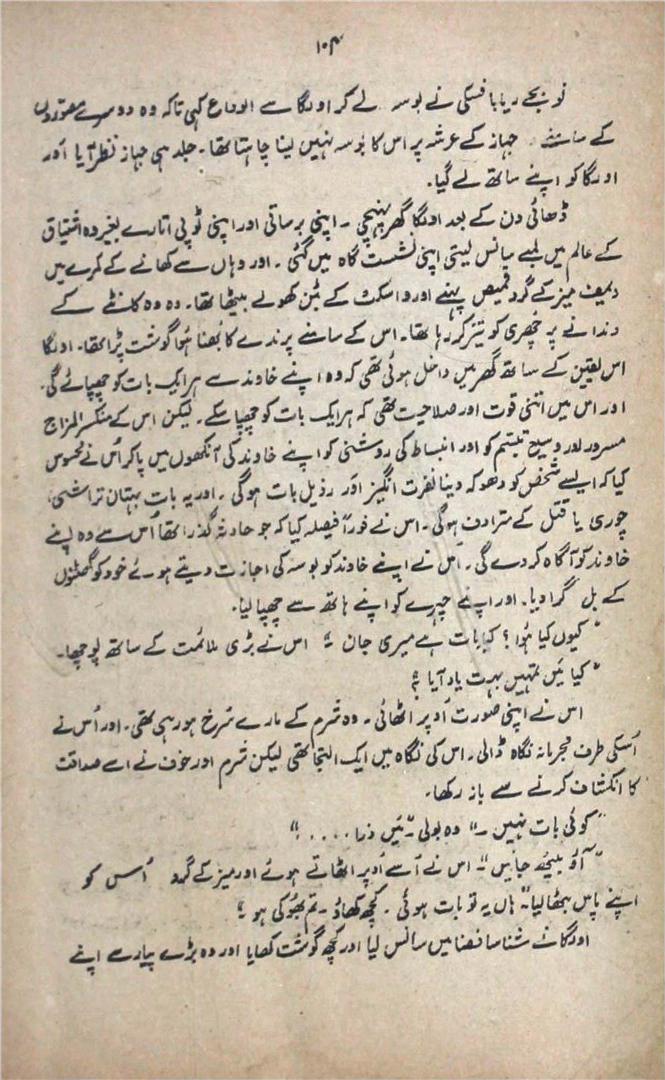 ۱۰۴
نو بجے ریابافسکی نے بوسہ لے کر اولگا سے الوداع کہی تاکہ وہ دوسرے مصوروں
کے سامنے جہاز کے عرشہ پر اس کا بوسہ نہیں لینا چاہتا تھا۔ جلد ہی جہاز نظر آیا اور
اولگا کو اپنے ساتھ لے گیا۔
ڈھائی دن کے بعد اولگا گھر پہنچی ۔ اپنی برساتی اور اپنی ٹوپی اتارے بغیر وہ اشتیاق
کے عالم میں لمبے سانس لیتی اپنی نشست گاہ میں گئی ۔ اور وہاں سے کھانے کے کمرے میں
دیمیف میز کے گرد قمیص پہنے اور واسکٹ کے بٹن کھولے بیٹھا تھا۔ وہ کانٹے کے
دندانے پر چھری کو تیز کر رہا تھا۔ اس کے سامنے پرندے کا بھنا ہوا گوشت پڑا تھا۔ اولگا
اس یقین کے ساتھ گھر میں داخل ہوئی تھی کہ وہ اپنے خاوند سے ہر ایک بات کو چھپائے گی۔
اور اس میں اتنی قوت اور صلاحیت تھی کہ ہر ایک بات کو چھپا سکے۔ لیکن اس کے منکسر المزاج
مسرور اور وسیع تبسم کو اور انبساط کی روشنی کو اپنے خاوند کی آنکھوں میں پا کر اُس نے محسوس
کیا کہ ایسے شخص کو دھوکہ دینا نفرت انگیز اور رذیل بات ہوگی ۔ اور یہ بات بہتان تراشی،
چوری یا قتل کے مترادف ہوگی ۔ اس نے فوراً فیصلہ کیا کہ جو حادثہ گذرا تھا اُس سے وہ اپنے
خاوند کو آگاہ کر دے گی ۔ اُس نے اپنے خاوند کو بوسہ کی اجازت دیتے ہوئے خود کو گھٹنوں
کے بل گرا دیا۔ اور اپنے چہرے کو اپنے ہاتھ سے چھپا لیا۔
"کیوں کیا ہُوا؟ کیا بات ہے میری جان ؟" اس نے بڑی ملائمت کے ساتھ پوچھا۔
"کیا میں تمہیں بہت یاد آیا ؟"
اس نے اپنی صورت اُوپر اٹھائی ۔ وہ شرم کے مارے سُرخ ہو رہی تھی۔ اور اُس نے
اُسکی طرف مجرمانہ نگاہ ڈالی ۔ اس کی نگاہ میں ایک التجا تھی لیکن شرم اور خوف نے اسے صداقت
کا انکشاف کرنے سے باز رکھا۔
"کوئی بات نہیں ۔" وہ بولی ۔ "میں ذرا . . . . ."
"آؤ بیٹھ جائیں"۔ اس نے اُسے اُوپر اٹھاتے ہوئے اور میز کے گرد اُس کو
اپنے پاس بٹھا لیا۔ "ہاں یہ تو بات ہوئی ۔ کچھ کھاؤ ۔ تم بھوکی ہو ؟"
اولگا نے شناسا فضا میں سانس لیا اور کچھ گوشت کھایا اور وہ بڑے پیار سے اپنے